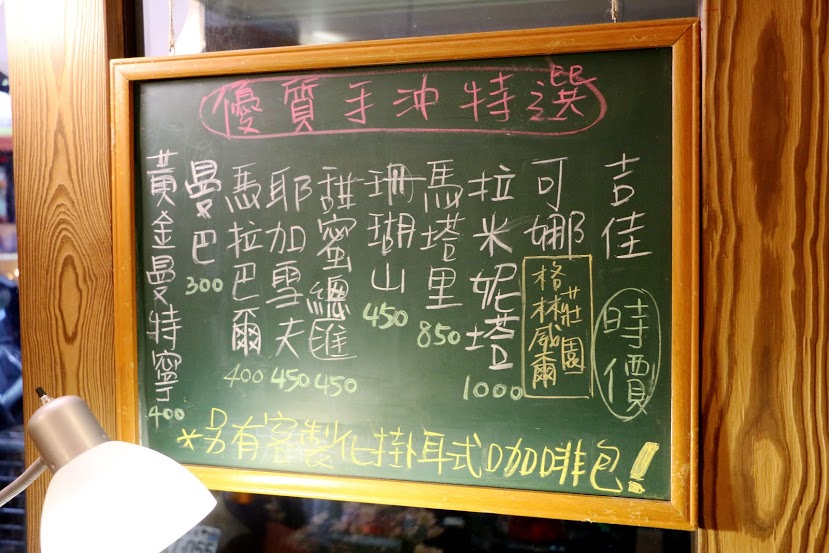 優質手沖特選
吉佳 時價
可娜 格林威爾莊園
拉米妮塔 1000
馬塔里 850
珊瑚山 450
甜蜜總匯 450
耶加雪夫 450
馬拉巴爾 400
曼巴 300
黃金曼特寧 400
*另有客製化掛耳式咖啡包!